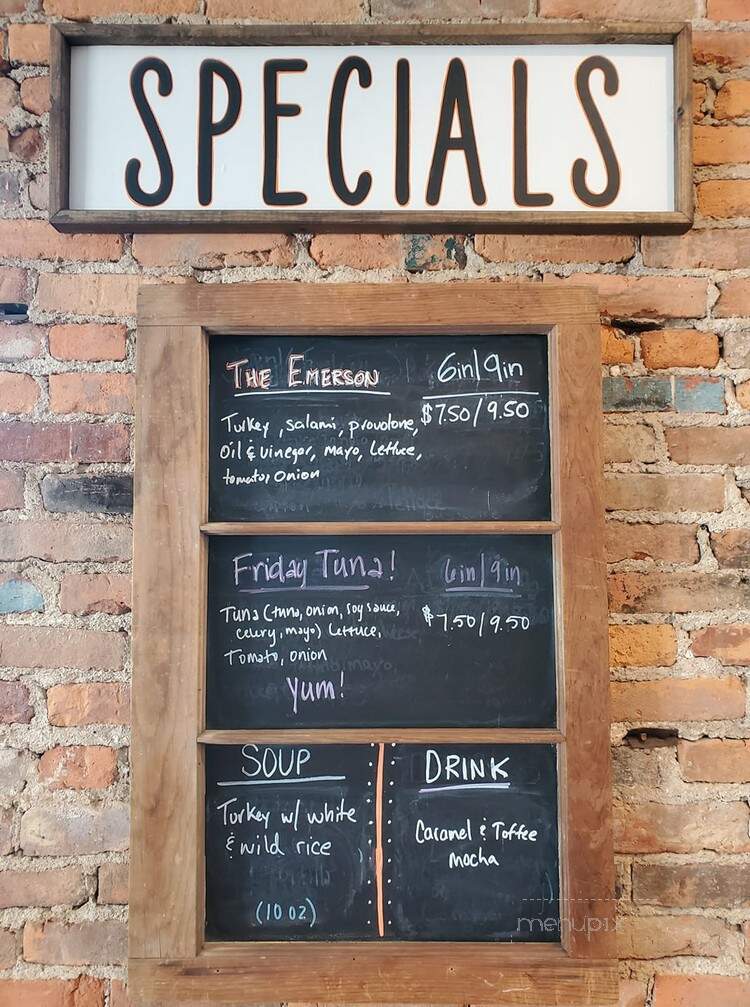 SPECIALS
THE EMERSON 6in/9in
Turkey, salami, provolone, $7.50/9.50
Oil & Vinegar, mayo, Lettuce,
tomato, Onion
Friday Tuna! 6in/9in
Tuna (tuna, onion, soy sauce, $7.50/9.50
celery, mayo) Lettuce,
Tomato, onion
Yum!
SOUP
Turkey w/ white
& wild rice
(10 oz)
DRINK
Caramel & Toffee
mocha
menupix